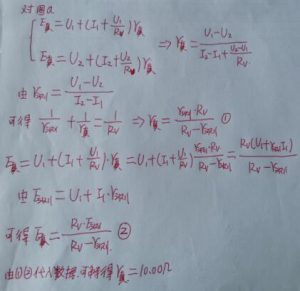 对图a
{ E真 = U₁ + (I₁ + U₁/Rv) r真
{ E真 = U₂ + (I₂ + U₂/Rv) r真 ⇒ r真 = (U₁ - U₂)/(I₂ - I₁ + (U₂ - U₁)/Rv)
由 r测 = (U₁ - U₂)/(I₂ - I₁)
可得 1/r测 = 1/r真 + 1/Rv ⇒ r真 = r测·Rv/(Rv - r测) ①
E真 = U₁ + (I₁ + U₁/Rv)·r真 = U₁ + (I₁ + U₁/Rv) r测·Rv/(Rv - r测) = Rv(U₁ + r测I₁)/(Rv - r测)
由 E测 = U₁ + I₁·r测
可得 E真 = Rv·E测/(Rv - r测) ②
由①②代入数据,可解得 r真 = 10.00Ω